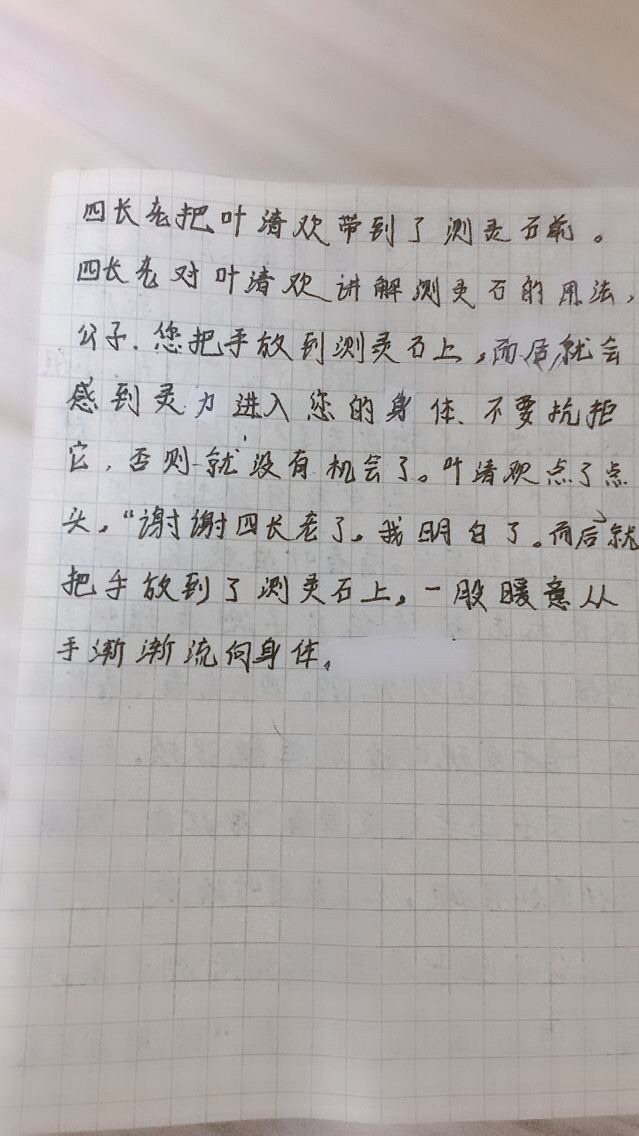 四长老把叶清欢带到了测灵石前。
四长老对叶清欢讲解测灵石的用法，
公子．您把手放到测灵石上，而后就会
感到灵力进入您的身体、不要抗拒
它，否则就没有机会了。叶清欢点了点
头，“谢谢四长老了。我明白了。而后就
把手放到了测灵石上，一股暖意从
手渐渐流向身体，